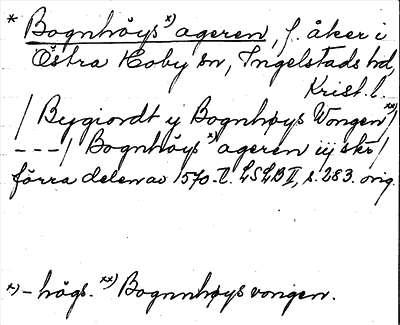 * Bognhöys x) ageren, f. åker i
Östra Hoby sn, Ingelstads hd,
Krist. l.
/ Bygiordt ij Bognhøys Wongen xx) /
- - - / Bognhöys x) ageren iij skr /
förra delen av 1570-t. LSLB II, s. 283. orig.
x) - högs. xx) Bognnhøys vongen.